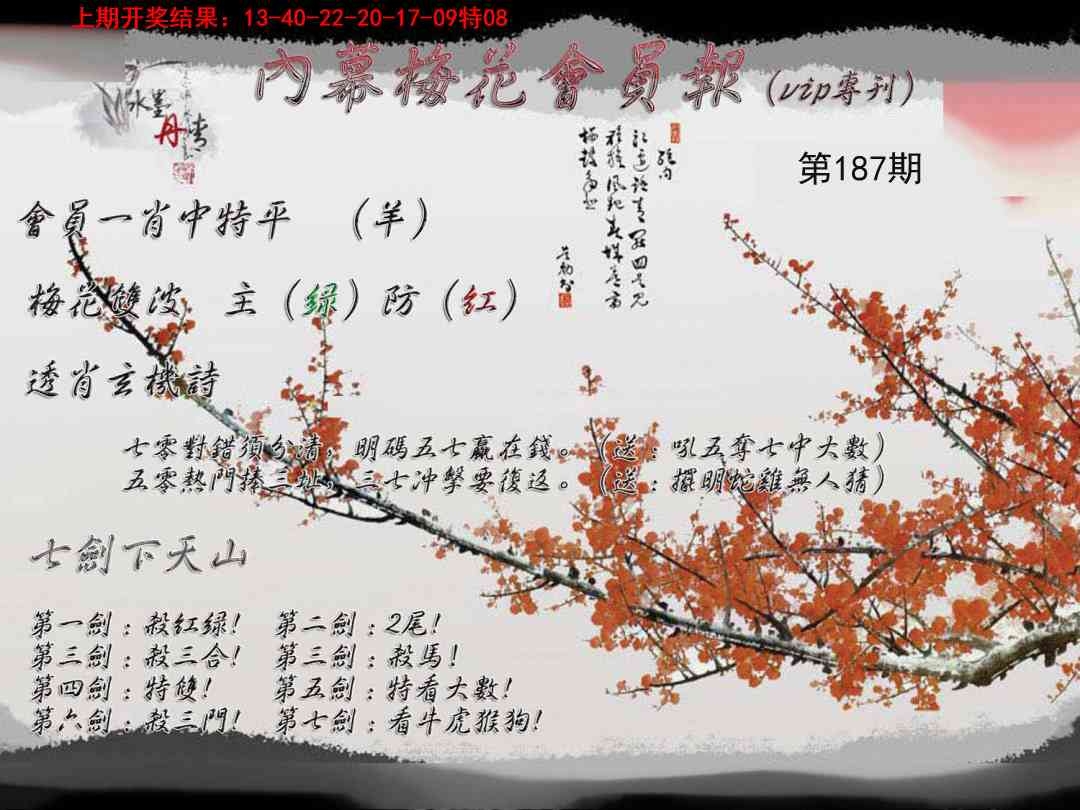 上期开奖结果：13-40-22-20-17-09特08
內幕梅花會員報（vip專刊）
水墨
丹青
第187期
會員一肖中特平 （羊）
梅花雙波 主（綠）防（紅）
透肖玄機詩
七零對錯須分清，明碼五七贏在錢。（送：吼五奪七中大數）
五零熱門捧三址，三七冲擊要復返。（送：擺明蛇雞無人猜）
七劍下天山
第一劍：殺紅绿! 第二劍：2尾!
第三劍：殺三合! 第三劍：殺馬!
第四劍：特雙! 第五劍：特看大數!
第六劍：殺三門! 第七劍：看牛虎猴狗!